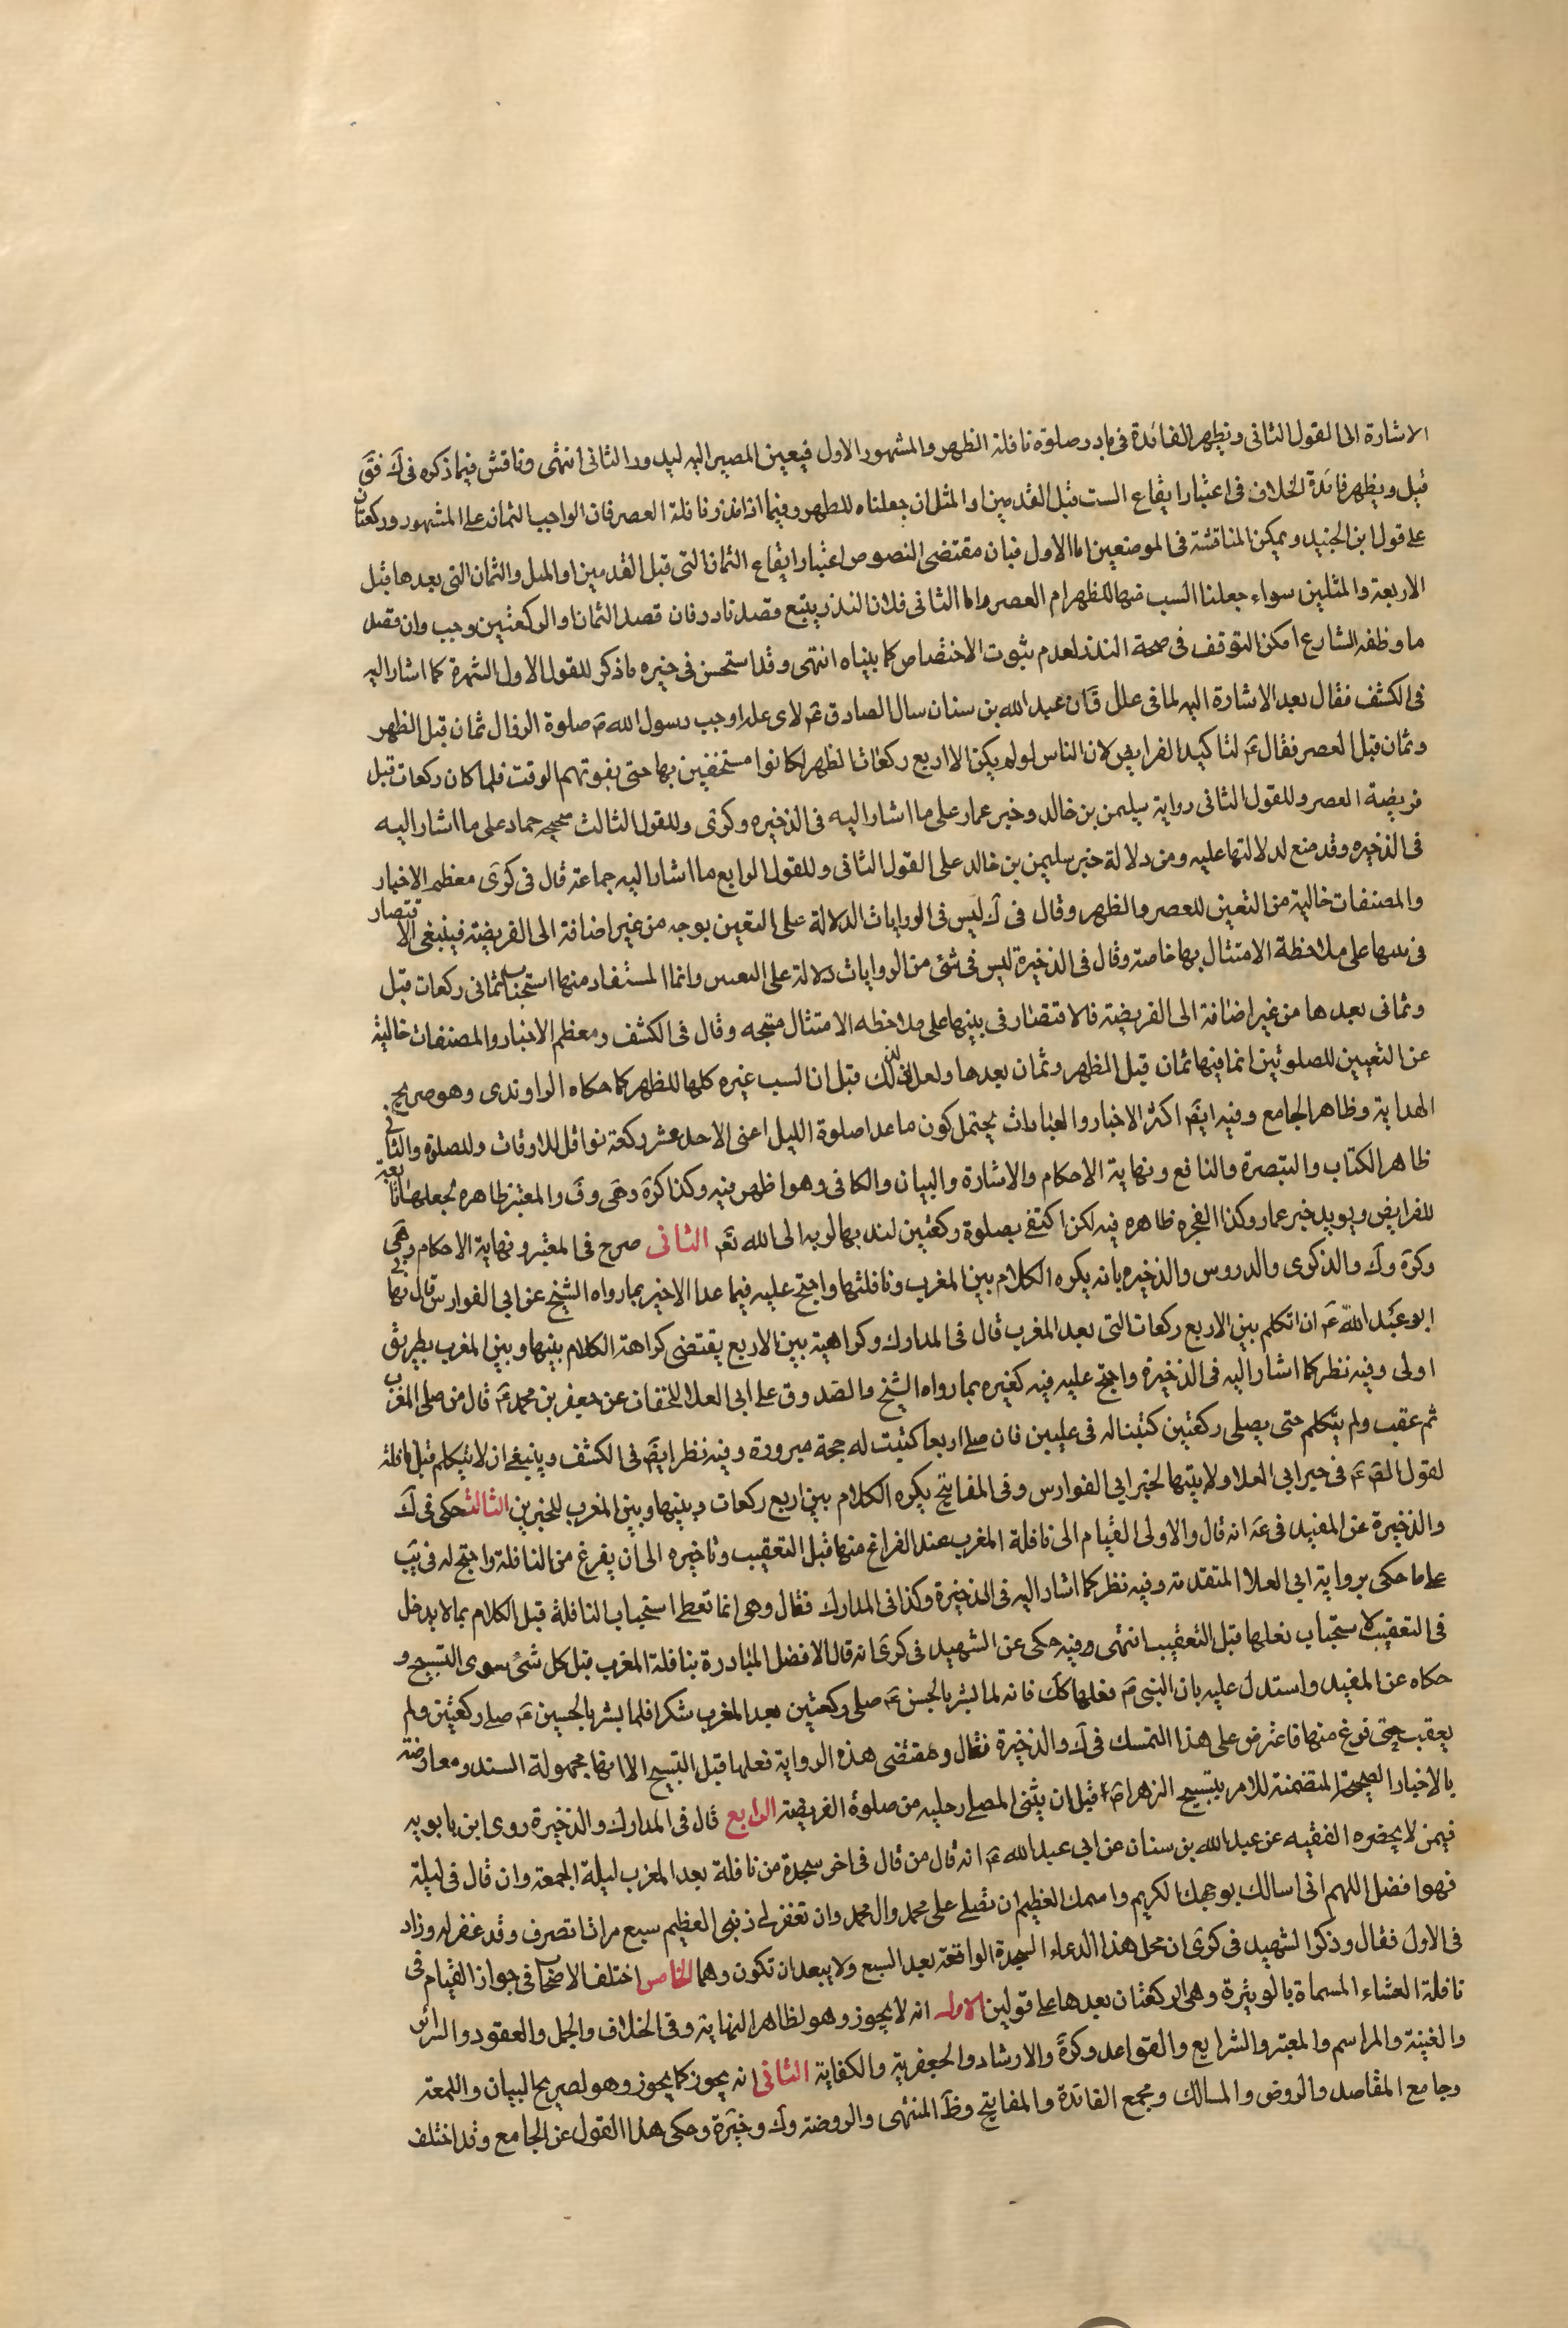 الاشارة الى القول الثانى ويظهر الفائدة فى نادر صلوة نافلة الظهر والمشهور الاول فيعين المصير اليه ليدور الثانى انتهى وناقش فيما ذكره فى ك فق
قيل ويظهر فائدة الخلاف فى اعتبار ايقاع الست قبل القدمين او المثل ان جعلناه للظهر وفيما اذا نذر نافلة العصر فان الواجب الثمان على المشهور وركعتان
على قول ابن الجنيد ويمكن المناقشة فى الموضعين اما الاول فبان مقتضى النصوص اعتبار ايقاع الثمان التى قبل القدمين او المثل والثمان التى بعدها قبل
الاربعة والمثلين سواء جعلنا الست منها للظهر ام العصر واما الثانى فلان النذر يتبع قصد نادر فان قصد الثمان او الركعتين وجب وان قصد
ما وظفه الشارع امكن التوقف فى صحة النذر لعدم ثبوت الاختصاص كما بيناه انتهى وقد استحسن فى خيره ما ذكر للقول الاول الشهرة كما اشار اليه
فى الكشف فقال بعد الاشارة اليه لما فى علل ق ان عبد الله بن سنان سال الصادق ع لاى علة اوجب رسول الله ص صلوة الزوال ثمان قبل الظهر
وثمان قبل العصر فقال ع لتاكيد الفرايض لان الناس لو لم يكن الا اربع ركعات الظهر لكانوا مستخفين بها حتى يفوتهم الوقت فلما كان ركعات قبل
فريضة العصر وللقول الثانى رواية سليمن بن خالد وخبر عمار على ما اشار اليه فى الذخيره وكرى وللقول الثالث صحيحة حماد على ما اشار اليه
فى الذخيره وقد منع لدلالتها عليه ومن دلالة خبر سليمن بن خالد على القول الثانى وللقول الرابع ما اشار اليه جماعة قال فى كرى معظم الاخبار
والمصنفات خالية من التعين للعصر والظهر وقال فى ك ليس فى الروايات الدلالة على التعين بوجه من غير اضافة الى الفريضة فينبغى الاقتصار
فى نيتها على ملاحظة الامتثال بها خاصة وقال فى الذخيرة ليس فى شئ من الروايات دلالة على التعيين وانما المستفاد منها استحباب ثمانى ركعات قبل
وثمانى بعدها من غير اضافة الى الفريضة فالاقتصار فى نيتها على ملاحظه الامتثال متجه وقال فى الكشف ومعظم الاخبار والمصنفات خالية
عن التعيين للصلوتين انما فيها ثمان قبل الظهر وثمان بعدها ولعل لذلك قيل ان الست غيره كلها للظهر كما حكاه الراوندى وهو صريح
الهداية وظاهر الجامع وفيه ايضا اكثر الاخبار والعبارات يحتمل كون ماعدا صلوة الليل اعنى الاحد عشر ركعة نوافل للاوقات وللصلوة والثانى
ظاهر الكتاب والتبصرة والنافع ونهاية الاحكام والاشارة والبيان والكافى وهو اظهر منيه وكذا كرة وهى وف والمعتبر ظاهره لجعلها تابعة
للفرايض ويويد خبر عمار وكذا الفجره ظاهره فيه لكن اكتفى بصلوة ركعتين لندبها لوبه الى الله تع الثانى صرح فى المعتبر ونهاية الاحكام وهى
وكرة وك والذكرى والدروس والذخيره بانه يكره الكلام بين المغرب ونافلتها واحتج عليه فيما عدا الاخير بما رواه الشيخ عن ابى الفوارس قال نهانى
ابو عبد الله ع ان اتكلم بين الاربع ركعات التى بعد المغرب قال فى المدارك وكراهية بين الاربع يقتضى كراهة الكلام بينها وبين المغرب بطريق
اولى وفيه نظر كما اشار اليه فى الذخيرة واحتج عليه فيه كغيره بما رواه الشيخ والصدوق على ابى العلا الخفاف عن جعفر بن محمد ع قال من صلى المغرب
ثم عقب ولم يتكلم حتى يصلى ركعتين كتبتا له فى عليين فان صلى اربعا كتبت له حجة مبرورة وفيه نظر ايضا فى الكشف وينبغى ان لا يتكلم قبل نافلة
لقول الص ع فى خبر ابى العلا ولا بينها لخبر ابى الفوارس وفى المفاتيح يكره الكلام بين اربع ركعات وبينها وبين المغرب للخبرين الثالث حكى فى ك
والذخيرة عن المفيد فى عة انه قال والاولى القيام الى نافلة المغرب عند الفراغ منها قبل التعقيب وتاخيره الى ان يفرغ من النافلة واحتج له فى يب
على ما حكى برواية ابى العلا المتقدمة وفيه نظر كما اشار اليه فى الذخيرة وكذا فى المدارك فقال وهى انما تعطى استحباب النافلة قبل الكلام بما لا يدخل
فى التعقيب لاستحباب فعلها قبل التعقيب انتهى وفيه حكى عن الشهيد فى كرى انه قال الافضل المبادرة بنافلة المغرب قبل كل شئ سوى التسبيح و
حكاه عن المفيد واستدل عليه بان النبى ص فعلها كك فانه لما بشر بالحسن ع صلى ركعتين بعد المغرب شكرا فلما بشر بالحسين ع صلى ركعتين ولم
يعقب حتى فرغ منها فاعترض على هذا التمسك فى ك والذخيرة فقال ومقتضى هذه الرواية فعلها قبل التسبيح الا انها مجهولة السند ومعارضة
بالاخبار الصحيحة المتضمنة للامر بتسبيح الزهراء ع قبل ان يثنى المصلى رجليه من صلوة الفريضة الرابع قال فى المدارك والذخيرة روى ابن بابويه
فيمن لا يحضره الفقيه عن عبد الله بن سنان عن ابى عبد الله ع انه قال من قال فى اخر سجدة من نافلة بعد المغرب ليلة الجمعة وان قال فى ليلة
فهو افضل اللهم انى اسالك بوجهك الكريم واسمك العظيم ان تصلى على محمد وال محمد وان تغفر لى ذنبى العظيم سبع مرات انصرف وقد غفر له وزاد
فى الاول فقال وذكر الشهيد فى كرى ان محل هذا الدعاء السجدة الواقعة بعد السبع ولا يبعد ان تكون وهما الخامس اختلف الاصحاب فى جواز القيام فى
نافلة العشاء المسماة بالوتيرة وهى الركعتان بعدها على قولين الاول انه لا يجوز وهو لظاهر النهاية وفى الخلاف والجمل والعقود والسرائر
والغنية والمراسم والمعتبر والشرايع والقواعد وكرة والارشاد والجعفرية والكفاية الثانى انه يجوز كما يجوز وهو لصريح البيان واللمعة
وجامع المقاصد والروض والمسالك ومجمع الفائدة والمفاتيح وظ المنتهى والروضة وك وخيرة وحكى هذا القول عن الجامع وقد اختلف